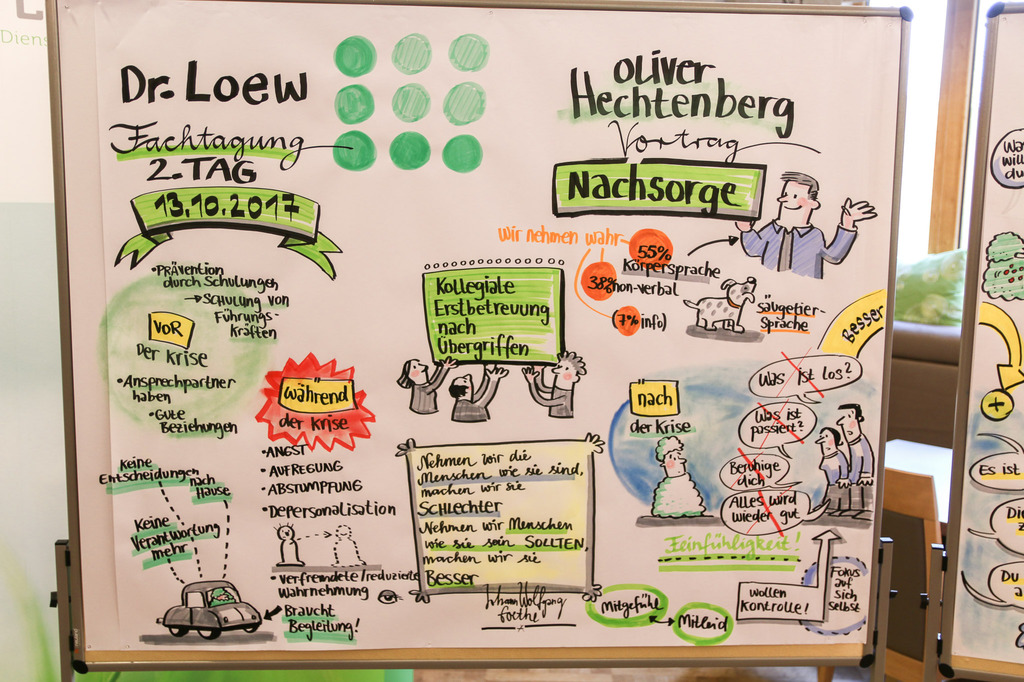 Dr. Loew
Fachtagung
2. TAG
13.10.2017
Oliver
Hechtenberg
Vortrag
Nachsorge
wir nehmen wahr
55%
Körpersprache
38% non-verbal
(7% info)
Säugetier-
Sprache
Kollegiale
Erstbetreuung
nach
Übergriffen
• Prävention
durch Schulungen
→ Schulung von
Führungs-
Kräften
VOR
Der Krise
• Ansprechpartner
haben
• Gute
Beziehungen
während
der Krise
• ANGST
• AUFREGUNG
• ABSTUMPFUNG
• Depersonalisation
• verfremdete/reduzierte
Wahrnehmung
Keine
Entscheidungen
nach
Hause
Keine
Verantwortung
mehr
Braucht
Begleitung!
Nehmen wir die
Menschen wie sie sind,
machen wir sie
SCHLECHTER
Nehmen wir Menschen
wie sie sein SOLLTEN,
machen wir sie
Besser
Johann Wolfgang
Goethe
nach
der Krise
Besser
Was ist los?
Was ist
passiert?
Beruhige
dich
Alles wird
wieder gut
Feinfühligkeit!
Mitgefühl
Mitleid
wollen
Kontrolle!
Fokus
auf
sich
selbst
Diens
Was
will
du
+
Es ist
Die
Du
a